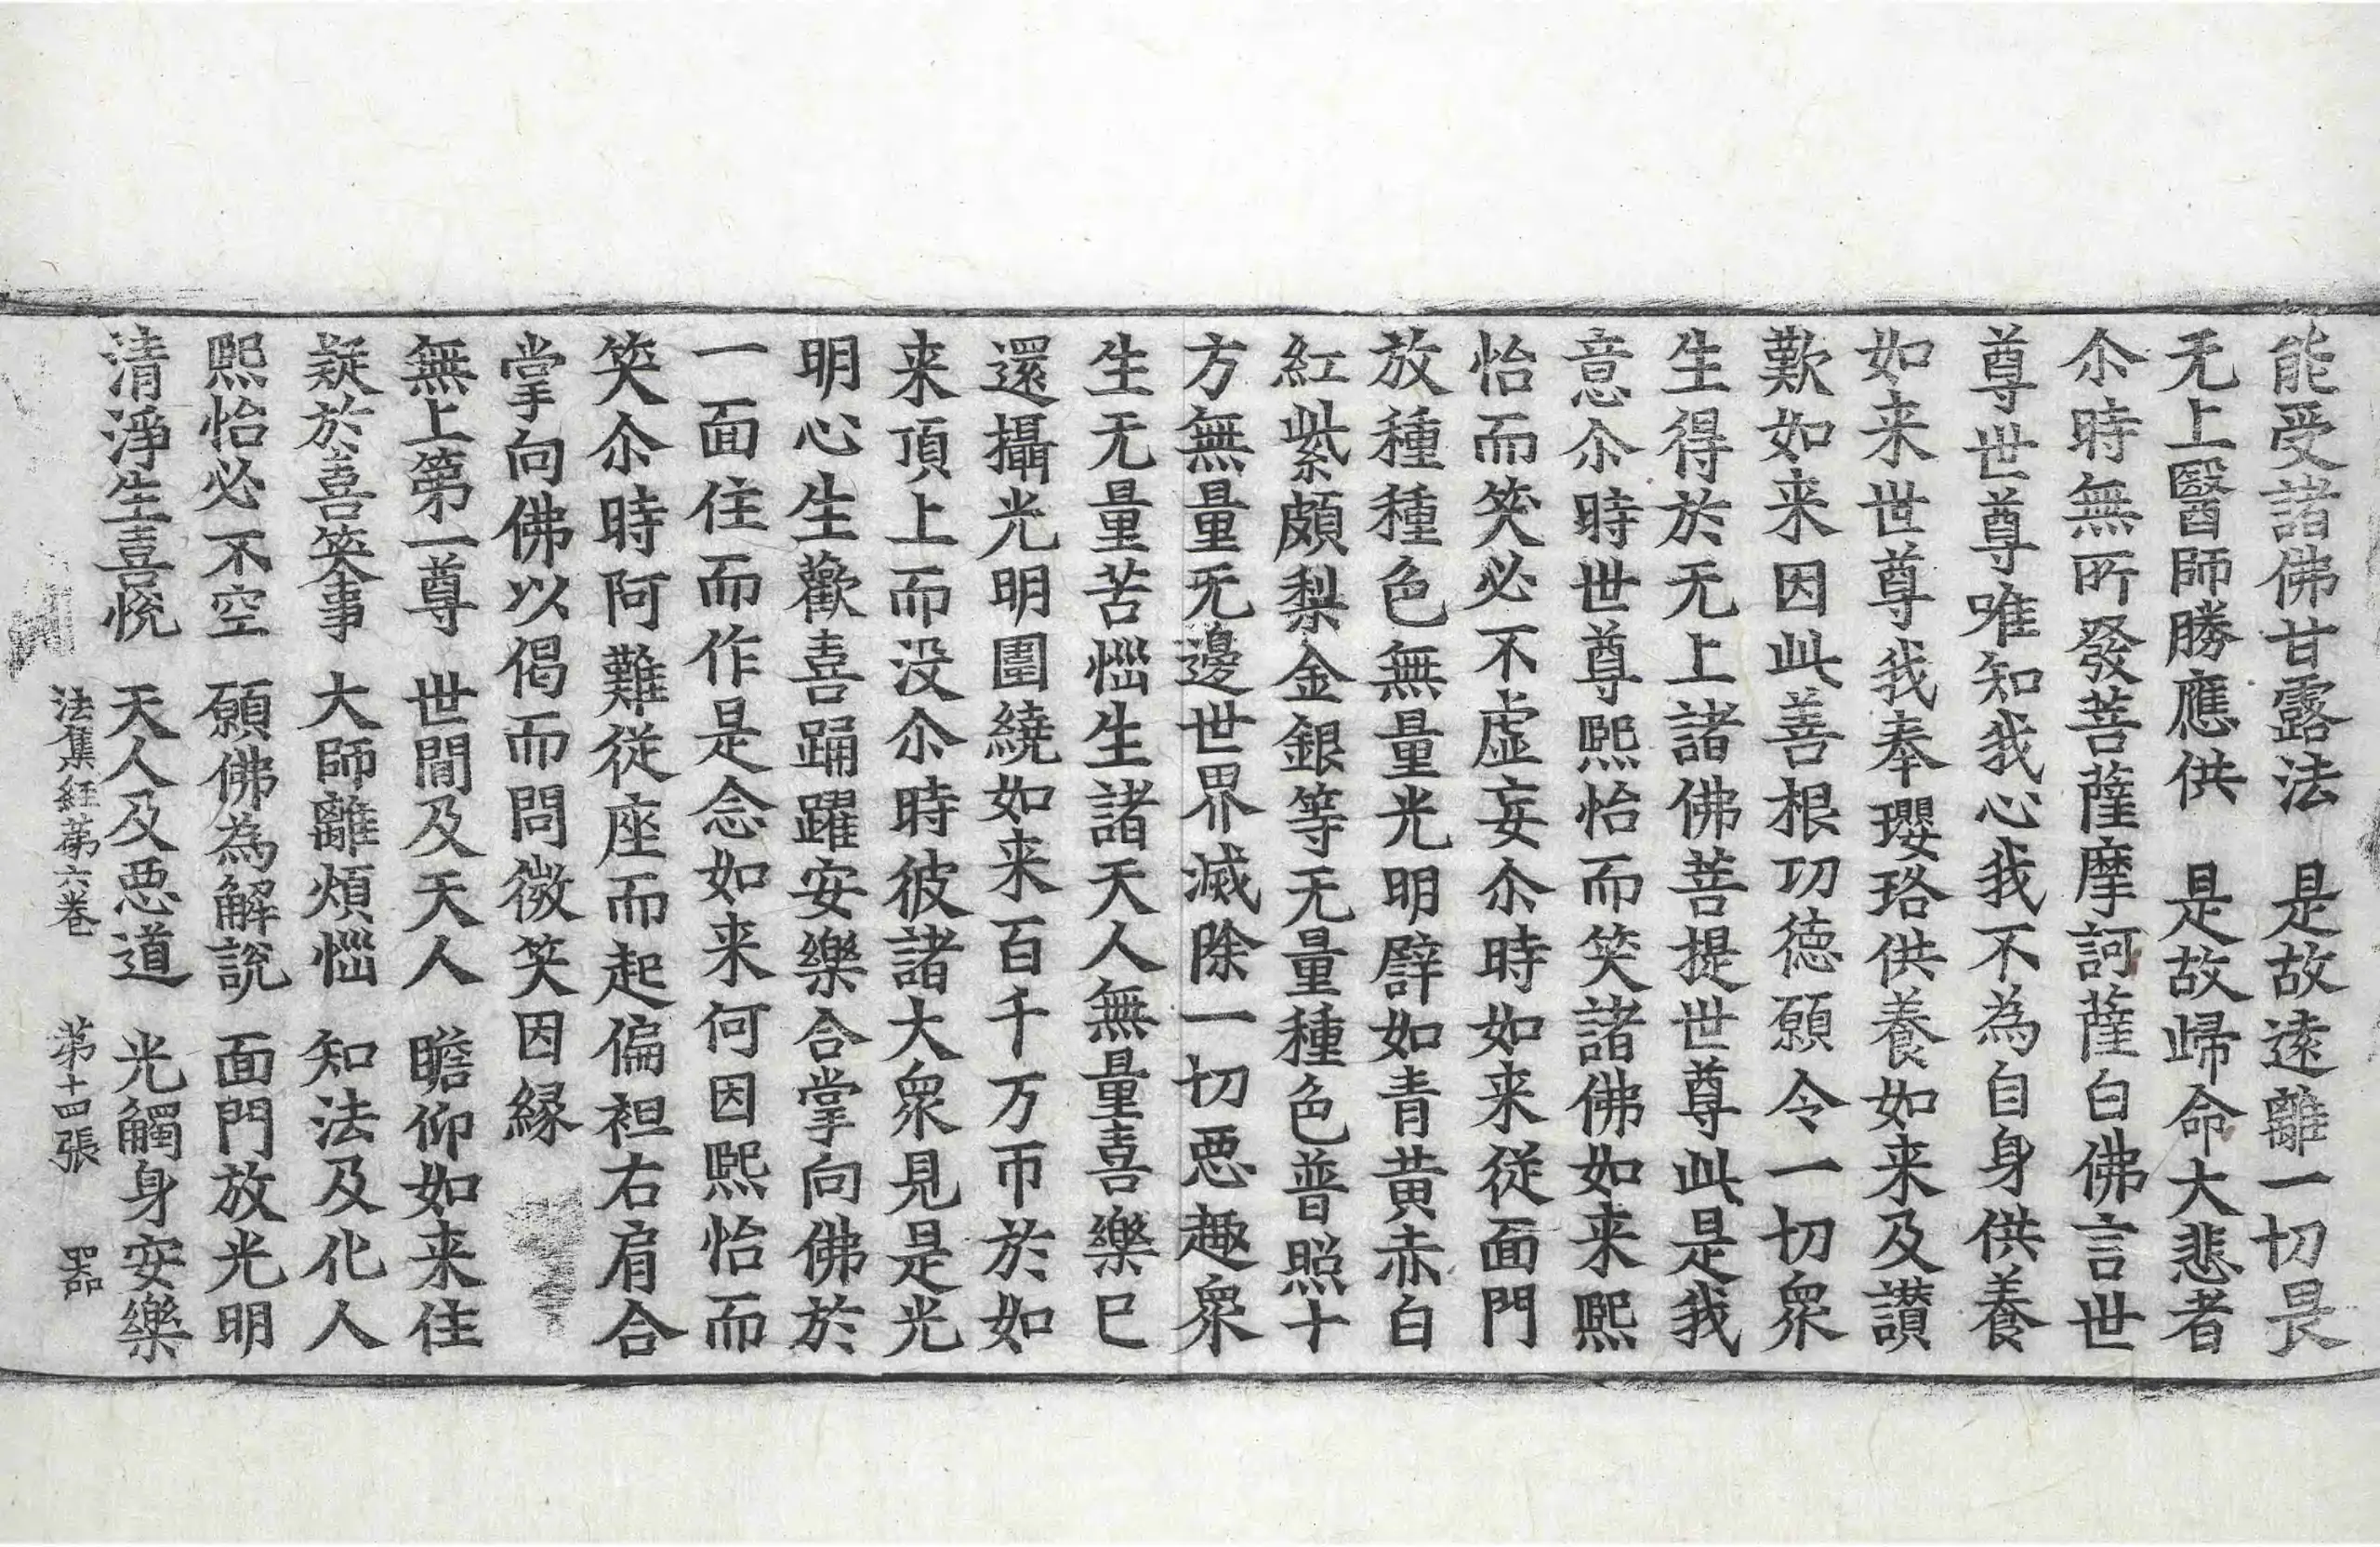 能受諸佛甘露法　是故遠離一切畏
无上醫師勝應供　是故歸命大悲者
尒時無所發菩薩摩訶薩白佛言世
尊世尊唯知我心我不為自身供養
如来世尊我奉瓔珞供養如来及讃
歎如来因此善根功徳願令一切衆
生得於无上諸佛菩提世尊此是我
意尒時世尊熙怡而笑諸佛如来熙
怡而笑必不虛妄尒時如来従面門
放種種色無量光明譬如青黄赤白
紅紫頗梨金銀等无量種色普照十
方無量无邊世界滅除一切悪趣衆
生无量苦惱生諸天人無量喜樂已
還攝光明圍繞如来百千万帀於如
来頂上而没尒時彼諸大衆見是光
明心生歡喜踊躍安樂合掌向佛於
一面住而作是念如来何因熙怡而
笑尒時阿難従座而起偏袒右肩合
掌向佛以偈而問微笑因縁
無上第一尊　世間及天人　瞻仰如来住
疑於喜笑事　大師離煩惱　知法及化人
熙怡必不空　願佛為解說　面門放光明
清淨生喜悅　天人及悪道　光觸身安樂
法集経苐六卷　苐十四張　器